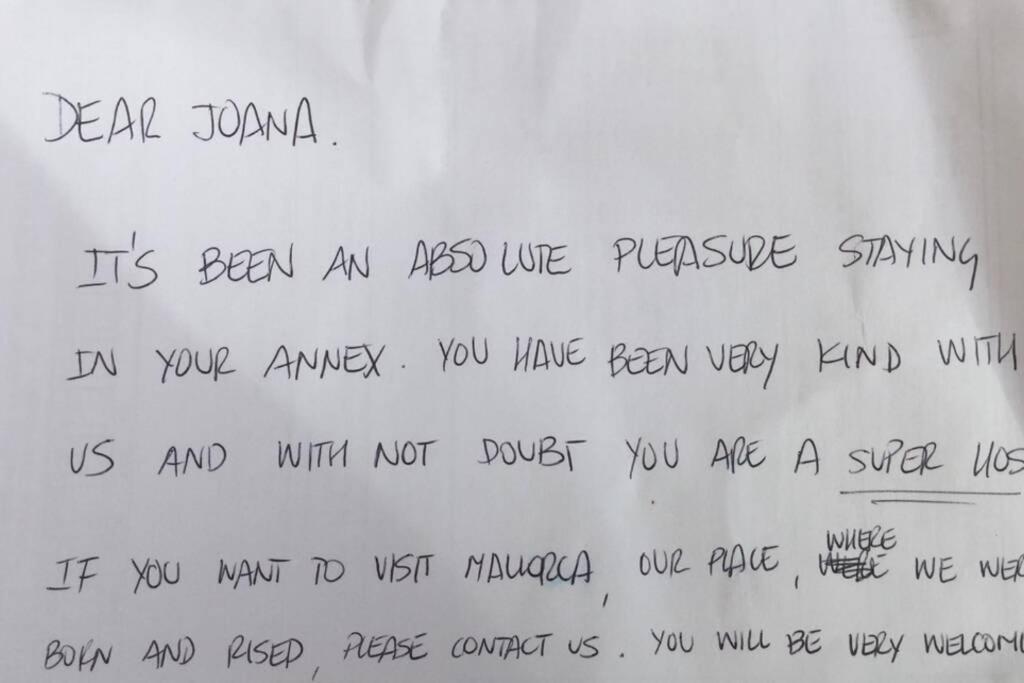 DEAR JOANA.
IT'S BEEN AN ABSOLUTE PLEASURE STAYING
IN YOUR ANNEX. YOU HAVE BEEN VERY KIND WITH
US AND WITH NOT DOUBT YOU ARE A SUPER HOS
WHERE
IF YOU WANT TO VISIT MALLORCA, OUR PLACE, WE WER
BORN AND RISED, PLEASE CONTACT US. YOU WILL BE VERY WELCOM